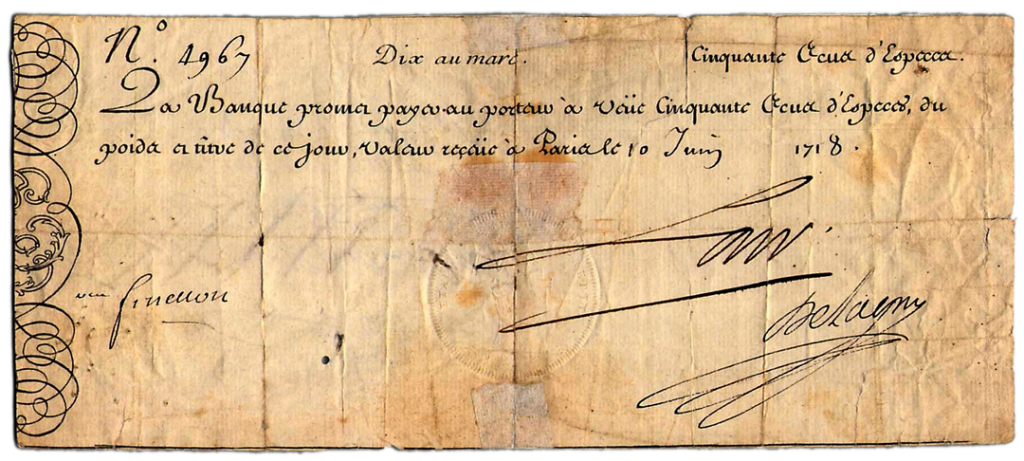 N.º 4967 Dix au marc. Cinquante Ecus d'Especes.
La Banque promet payer au porteur à Veüe Cinquante Ecus d'Especes, du
poids et titre de ce jour, valeur reçeüe à Paris le 10 Juin 1718.
Law.
veu fenellon
Delagny